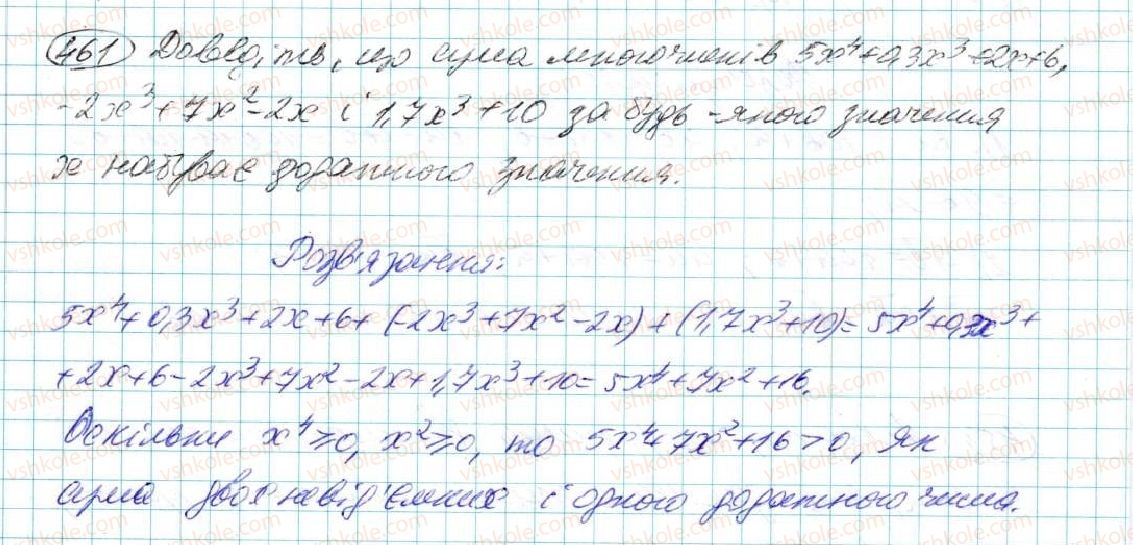 461 Доведіть, що сума многочленів 5x⁴+0,3x³+2x+6,
-2x³+7x²-2x і 1,7x³+10 за будь-якого значення
x набуває додатного значення.
Розв'язання:
5x⁴+0,3x³+2x+6+(-2x³+7x²-2x)+(1,7x³+10)=5x⁴+0,3x³+
+2x+6-2x³+7x²-2x+1,7x³+10=5x⁴+7x²+16.
Оскільки x⁴≥0, x²≥0, то 5x⁴+7x²+16>0, як
сума двох невід'ємних і одного додатного числа.